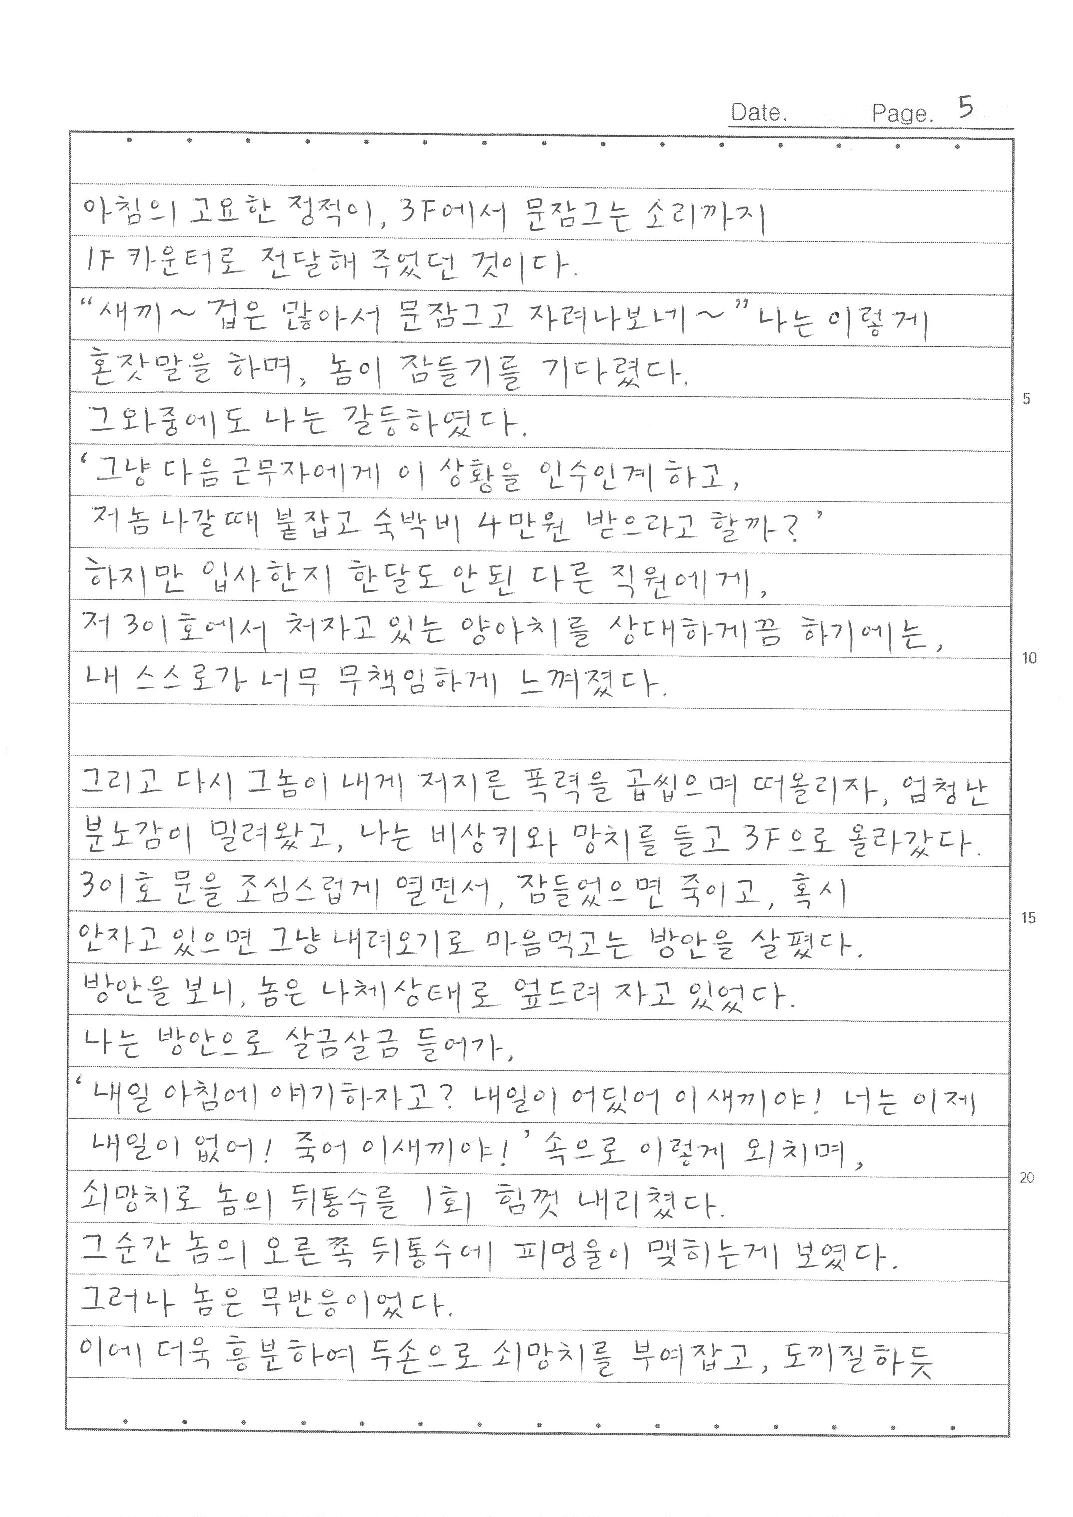 Date. Page. 5
아침의 고요한 정적이, 3F에서 문잠그는 소리까지
1F 카운터로 전달해 주었던 것이다.
“새끼~ 겁은 많아서 문잠그고 자려나보네~” 나는 이렇게
혼잣말을 하며, 놈이 잠들기를 기다렸다.
그와중에도 나는 갈등하였다.
5
‘그냥 다음 근무자에게 이 상황을 인수인계 하고,
저놈 나갈때 붙잡고 숙박비 4만원 받으라고 할까?’
하지만 입사한지 한달도 안된 다른 직원에게,
저 301호에서 처자고 있는 양아치를 상대하게끔 하기에는,
내 스스로가 너무 무책임하게 느껴졌다.
10
그리고 다시 그놈이 내게 저지른 폭력을 곱씹으며 떠올리자, 엄청난
분노감이 밀려왔고, 나는 비상키와 망치를 들고 3F으로 올라갔다.
301호 문을 조심스럽게 열면서, 잠들었으면 죽이고, 혹시
안자고 있으면 그냥 내려오기로 마음먹고는 방안을 살폈다.
15
방안을 보니, 놈은 나체상태로 엎드려 자고 있었다.
나는 방안으로 살금살금 들어가,
‘내일 아침에 얘기하자고? 내일이 어딨어 이새끼야! 너는 이제
내일이 없어! 죽어 이새끼야!’ 속으로 이렇게 외치며,
쇠망치로 놈의 뒤통수를 1회 힘껏 내리쳤다.
20
그순간 놈의 오른쪽 뒤통수에 피멍울이 맺히는게 보였다.
그러나 놈은 무반응이었다.
이에 더욱 흥분하여 두손으로 쇠망치를 부여잡고, 도끼질하듯